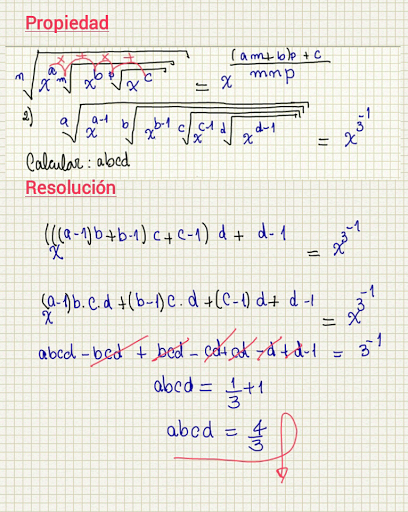 Propiedad
\sqrt[n]{x^a \sqrt[m]{x^b \sqrt[p]{x^c}}} = x^{\frac{(am+b)p+c}{mnp}}
2) \sqrt[a]{x^{a-1} \sqrt[b]{x^{b-1} \sqrt[c]{x^{c-1} \sqrt[d]{x^{d-1}}}}} = x^{3^{-1}}
Calcular: abcd
Resolución
x^{(((a-1)b+b-1)c+c-1)d+d-1} = x^{3^{-1}}
x^{(a-1)b.c.d+(b-1)c.d+(c-1)d+d-1} = x^{3^{-1}}
abcd - bcd + bcd - cd + cd - d + d - 1 = 3^{-1}
abcd = \frac{1}{3} + 1
abcd = \frac{4}{3}